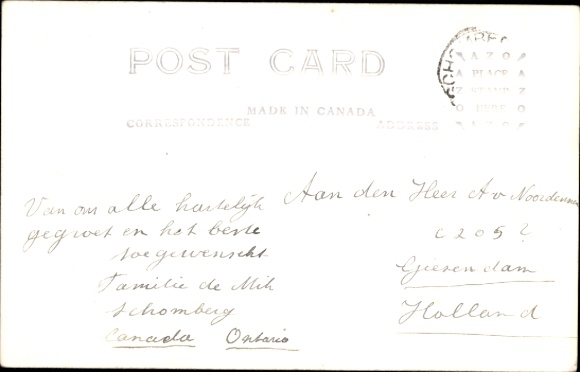 POST CARD
MADE IN CANADA
CORRESPONDENCE
ADDRESS
AZO
A PLACE A
Z STAMP Z
O HERE O
AZO
Van ons alle hartelijk
gegroet en het beste
toegewenscht
Familie de
Schomberg
Canada Ontario
Aan den Heer A v
C 205
Giesendam
Holland